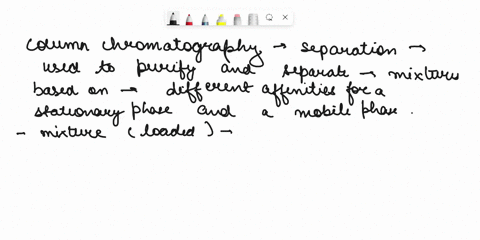 column chromatography → separation →
used to purify and separate → mixtures
based on → different affinities for a
stationary phase and a mobile phase.
- mixture (loaded) →